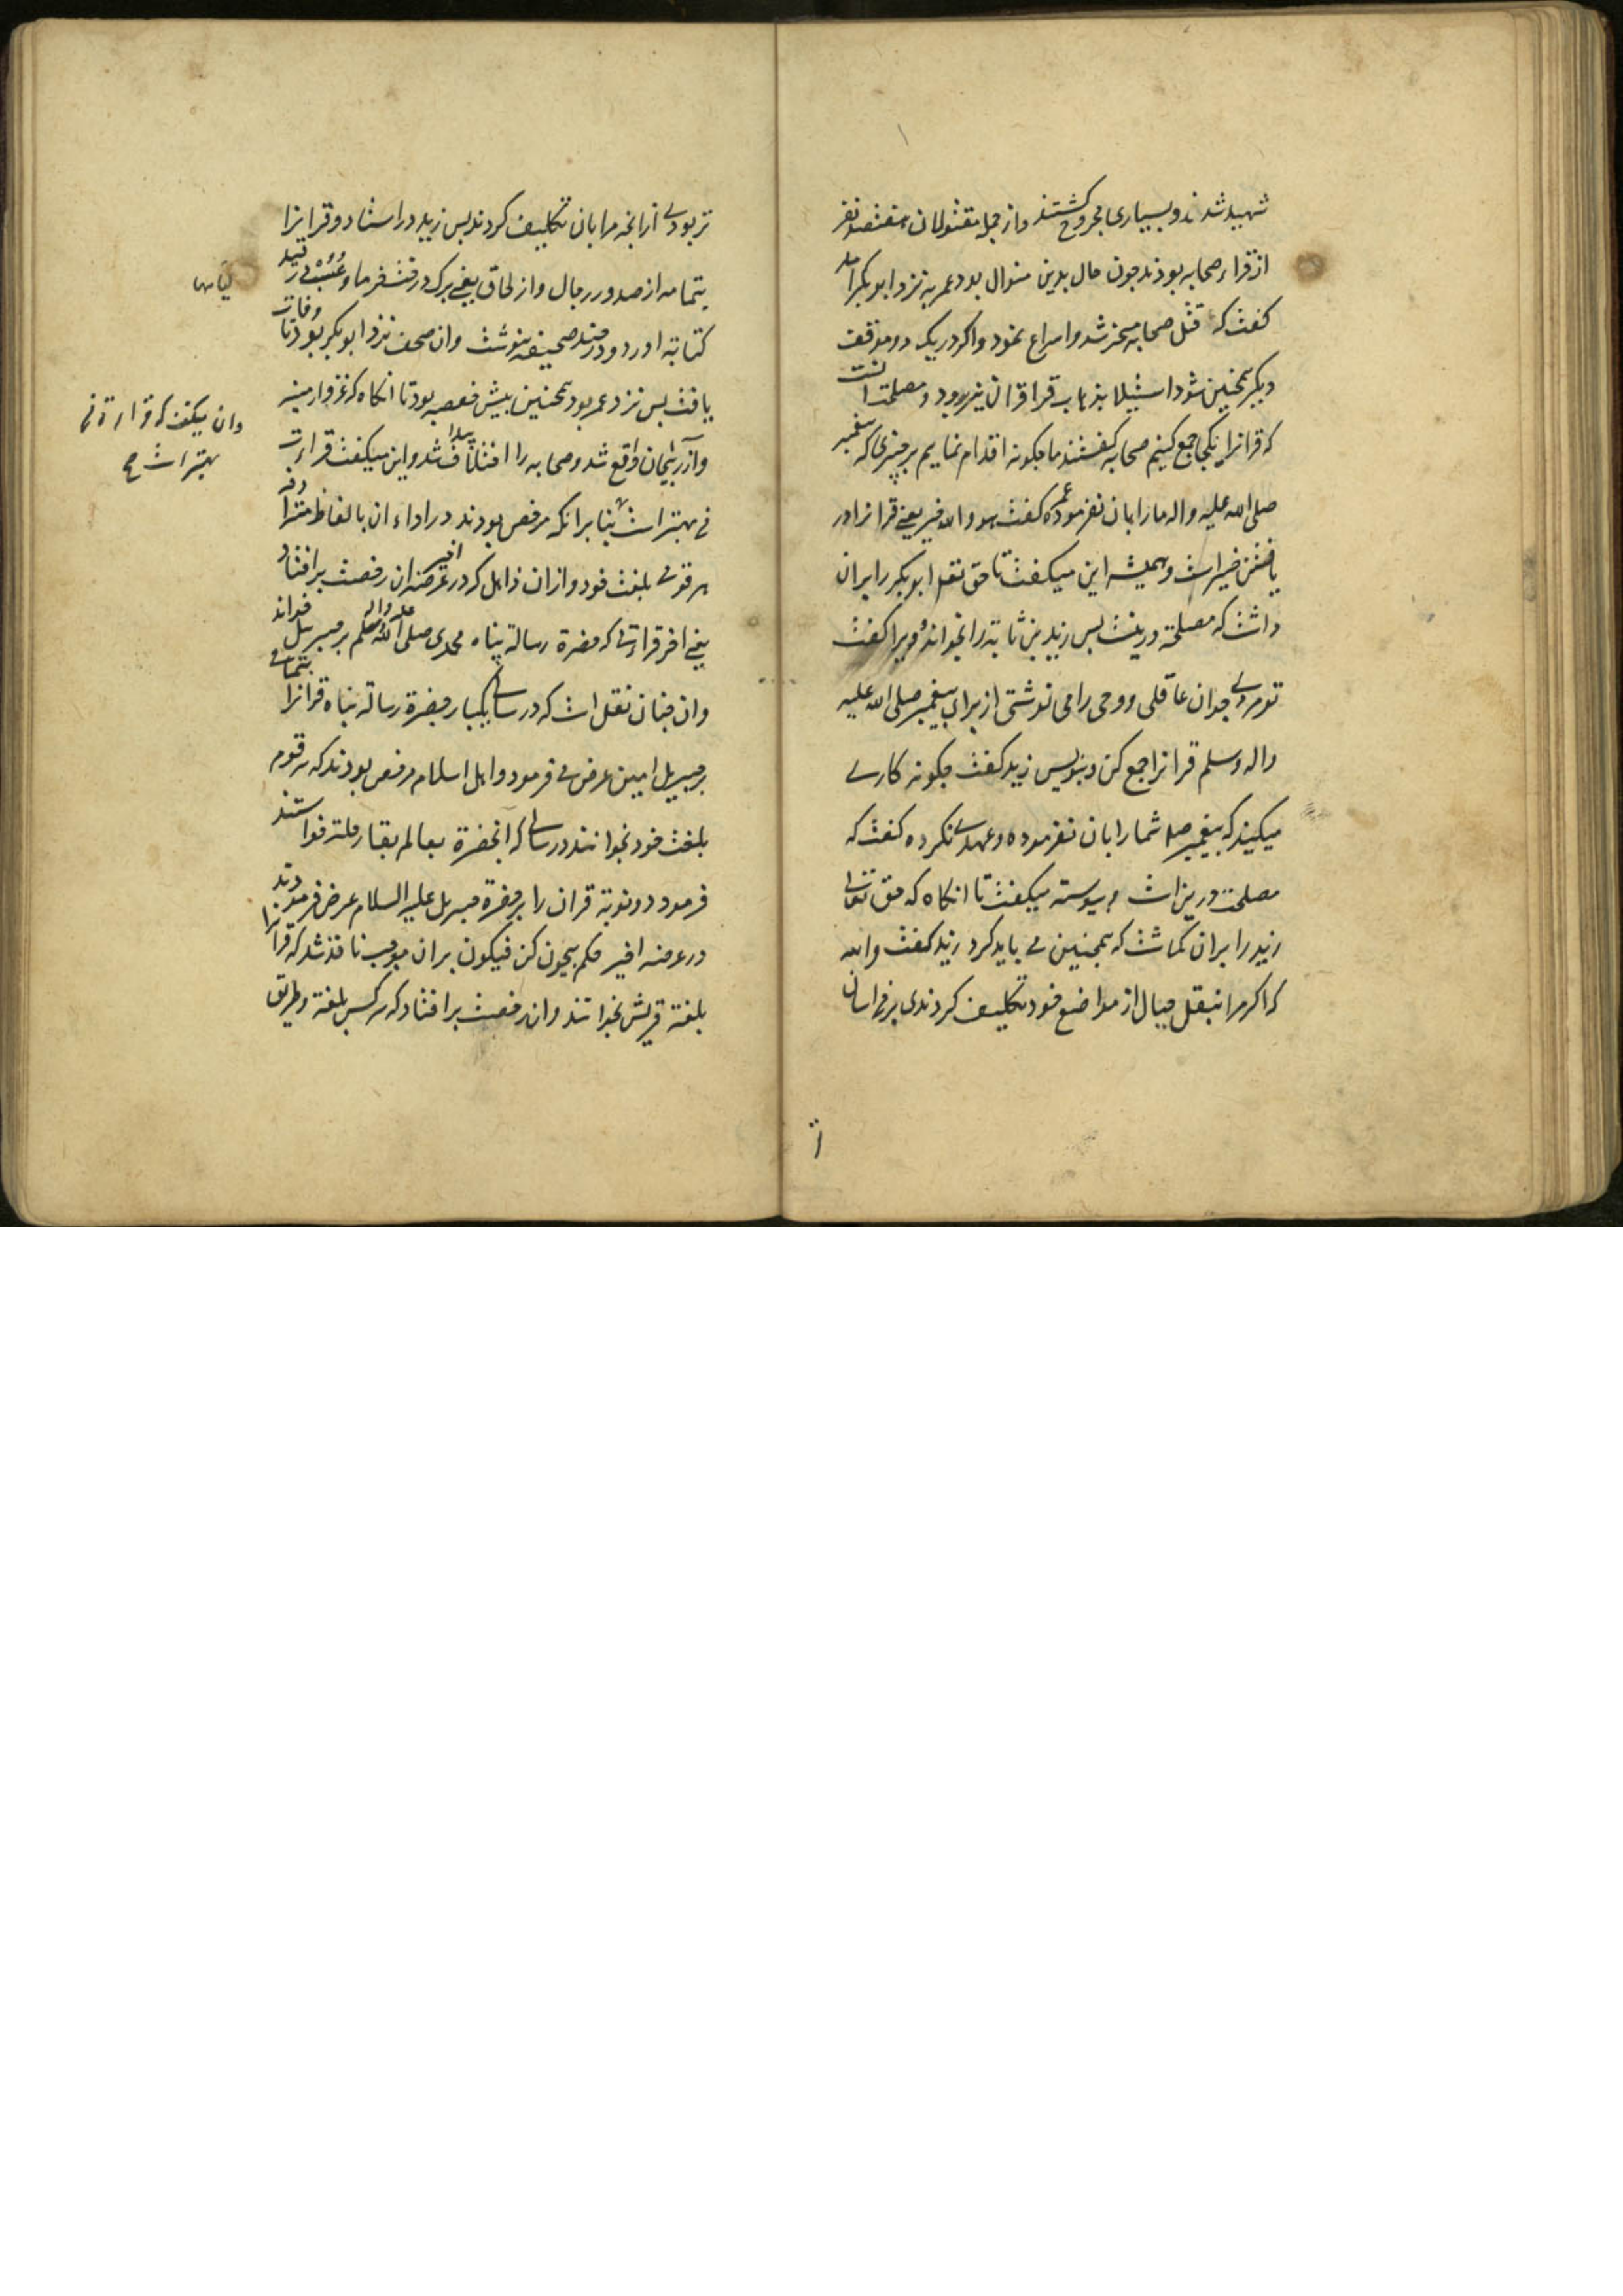 شهید شدند و بسیاری مجروح کشتند و از جمله مقتولان هفتصد نفر
از قراء صحابه بودند چون حال بدین منوال بود عمر به نزد ابو بکر امد
کفت که قتل صحابه منجر شد و اسراع نمود و اکر در یک دو موقف
دیکر همچنین شود استیلا بذهاب قرا قران نیز برود و مصلحت انست
که قرانرا یکجا جمع کنیم صحابه کفتند ما چکونه اقدام نماییم بر چیزی که پیغمبر
صلی الله علیه واله ما را بان نفرموده عمر کفت هو والله خیر یعنی قرانرا در
یافتن خیر است و همیشه این میکفت تا حق تعالی ابو بکر را بران
داشت که مصلحة درینست بس زید بن ثابة را بخواند و ویرا کفت
تو مردی جوان عاقلی و وحی را می نوشتی از برای پیغمبر صلی الله علیه
واله وسلم قرانرا جمع کن و بنویس زید کفت چکونه کاری
میکنید که پیغمبر صلم شما را بان نفرموده و عهدی نکرده کفت که
مصلحت درین است و پیوسته میکفت تا انکاه که حق تعالی
زید را بران کماشت که همچنین می باید کرد زید کفت والله
که اکر مرا بنقل جبال از مواضع خود تکلیف کردندی بر من اسان
تر بودی از انچه مرا بان تکلیف کردند بس زید در استاد و قرانرا
بتمامه از صدور رجال و از لحاف یعنی برک درخت خرما و عسب در قید
کتابة اورد و در چند صحیفه بنوشت وان صحف نزد ابو بکر بود تا وفات
یافت بس نزد عمر بود همچنین بیش حفصه بود تا انکاه که غزو ارمینه
و آذربیجان واقع شد و صحابه را اختلاف پیدا شد و این میکفت قراءت
من بهتر است بنا برانکه مرخص بودند در اداء ان بالفاظ مترادفه
هر قومی بلغت خود و ازان ذاهل که در عرضه اخیر ان رخصت بر افتاد
یعنی اخر قراءتی که حضرة رسالة پناه محمدی صلی الله علیه واله وسلم بر جبریل خواند
وان چنان نقل است که در سالی یکبار حضرة رسالة پناه قرانرا بتمامی
بر جبریل امین عرض می فرمود و اهل اسلام مرخص بودند که هر قوم
بلغت خود بخوانند در سالی که انحضرة بعالم بقا رحلت خواستند
فرمود دو نوبة قران را بر حضرة جبریل علیه السلام عرض فرمودند
در عرضه اخیر حکم بیچون کن فیکون بران موجب نافذ شد که قرانرا
بلغة قریش بخوانند وان رخصت بر افتاد که هر کس بلغة و طریق
وان میکفت که قراءة من
بهتر است صح